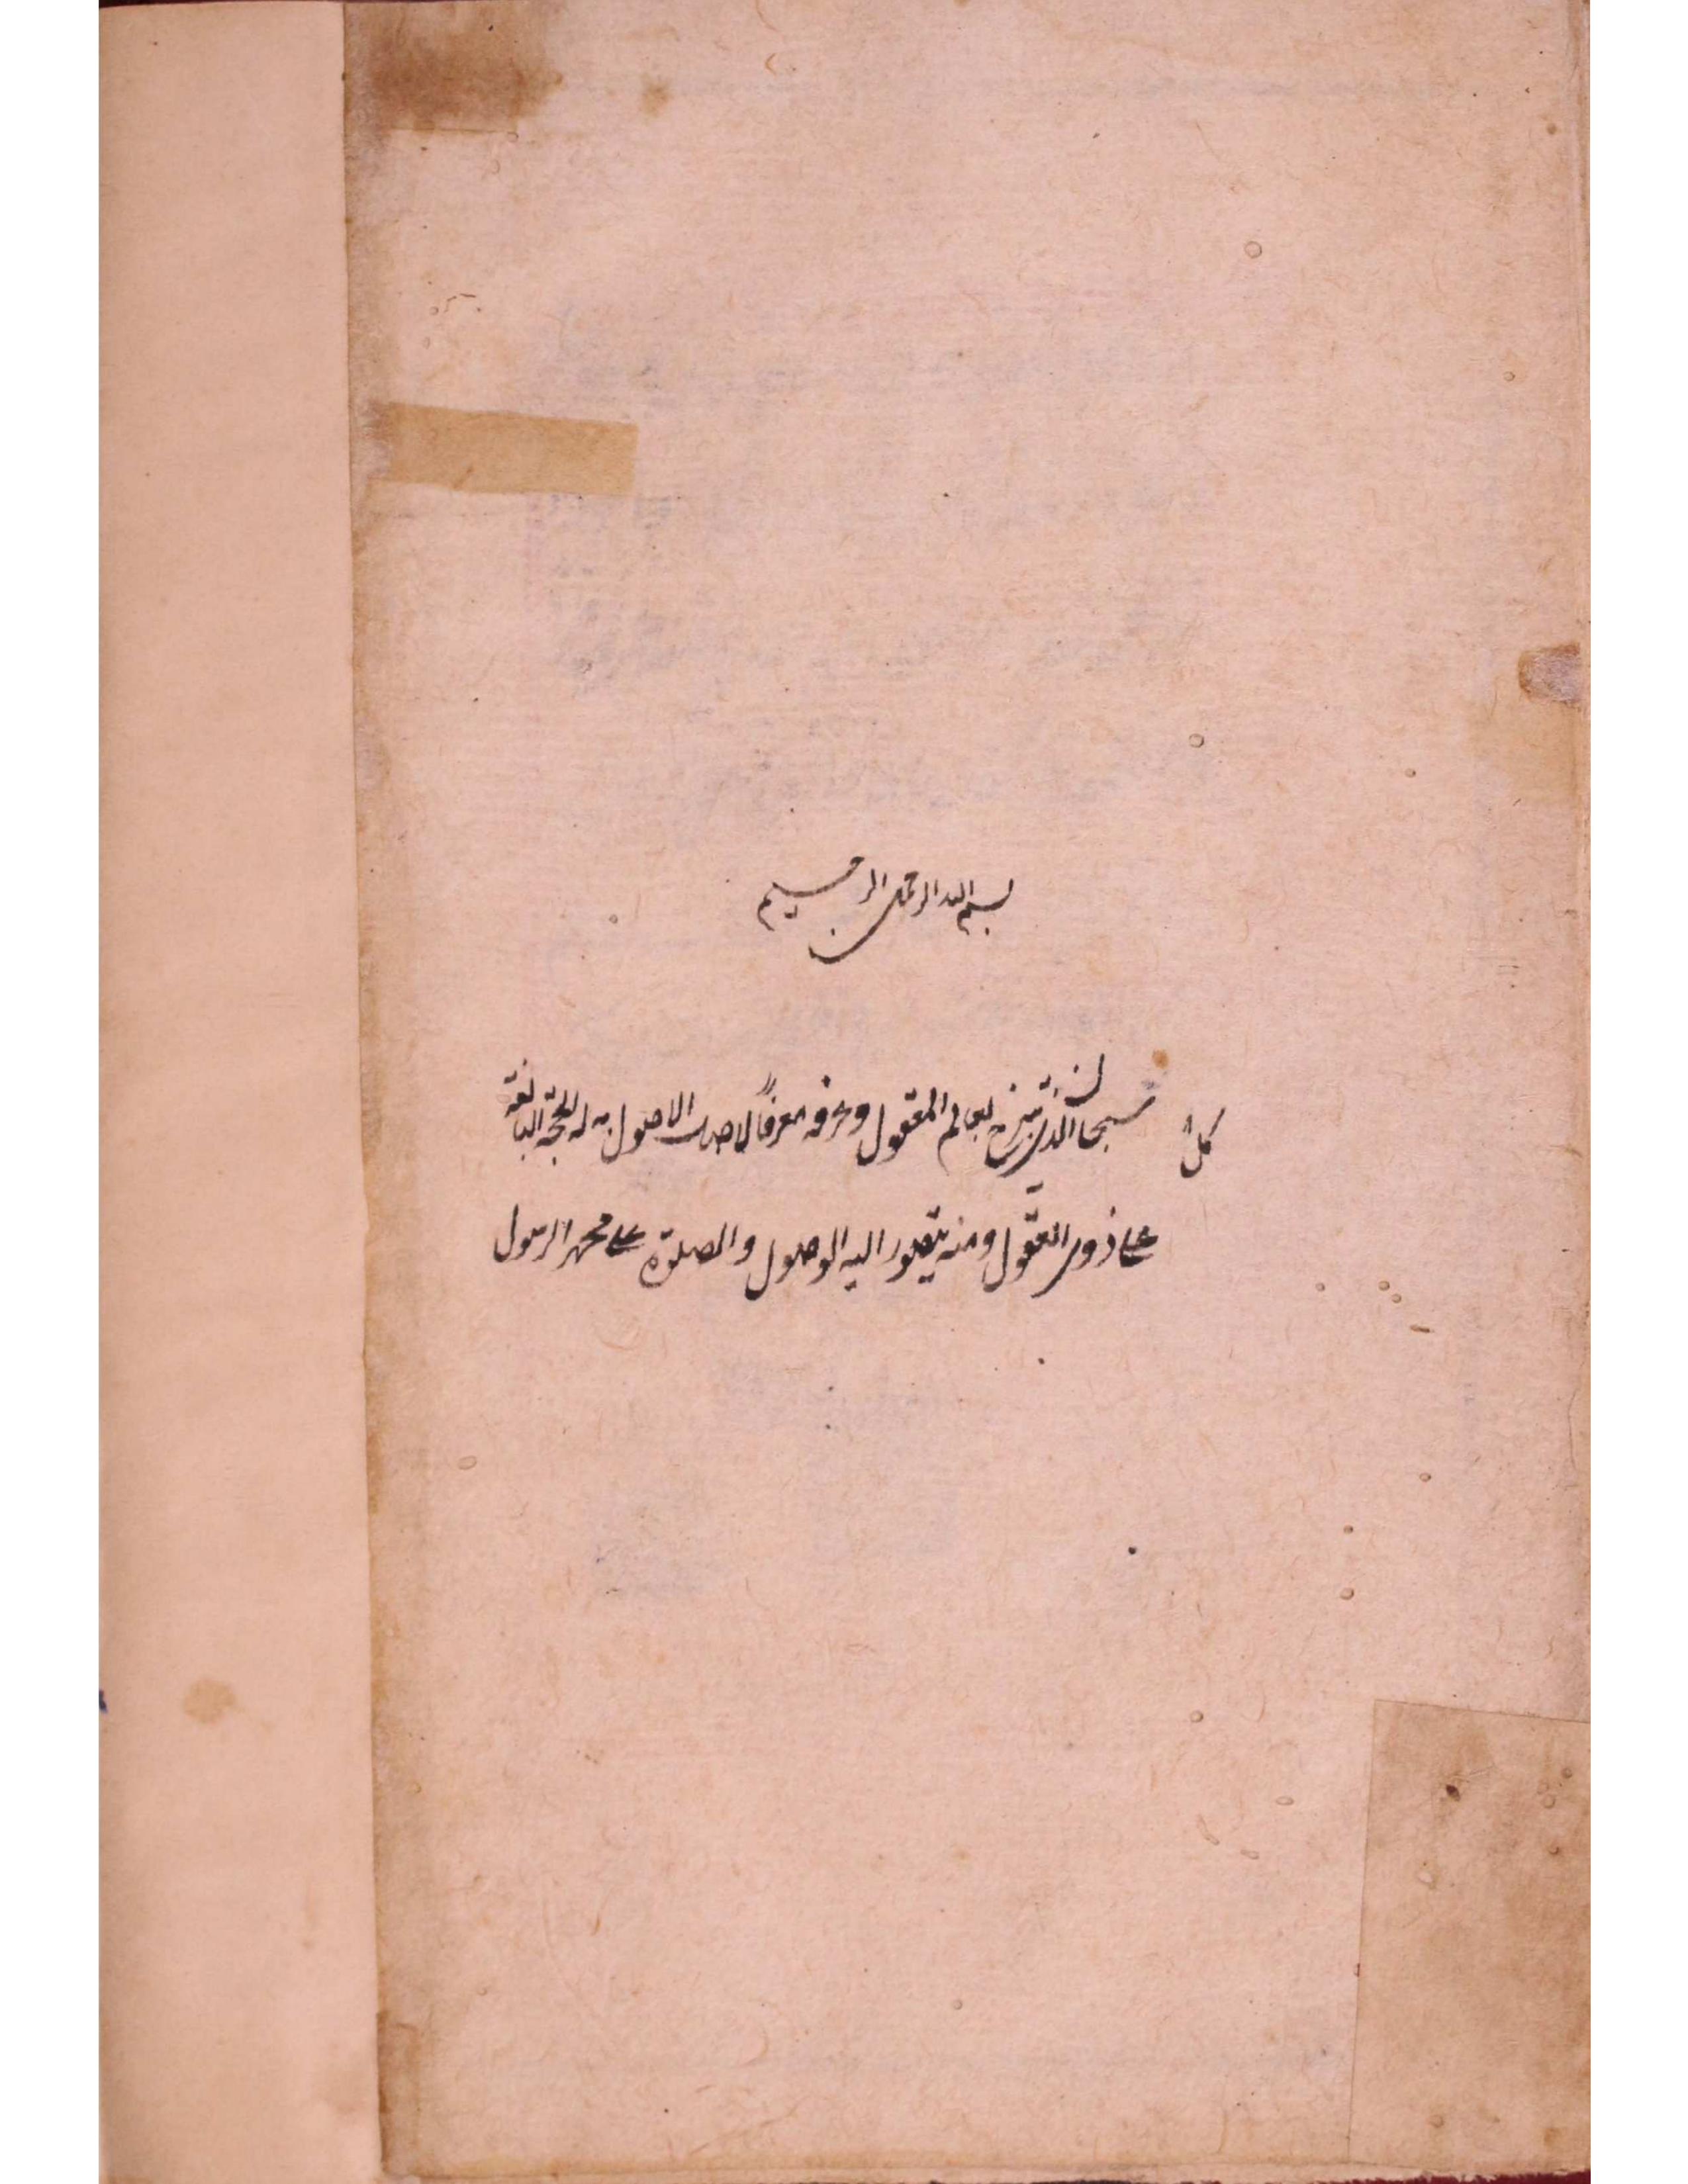 بسم الله الرحمن الرحيم
سبحان الذى تنزه بعالم المعقول وعرفه معرفا لاصحاب الاصول له الحجة البالغة
على ذوى العقول ومنه يتصور اليه الوصول والصلوة على محمد الرسول